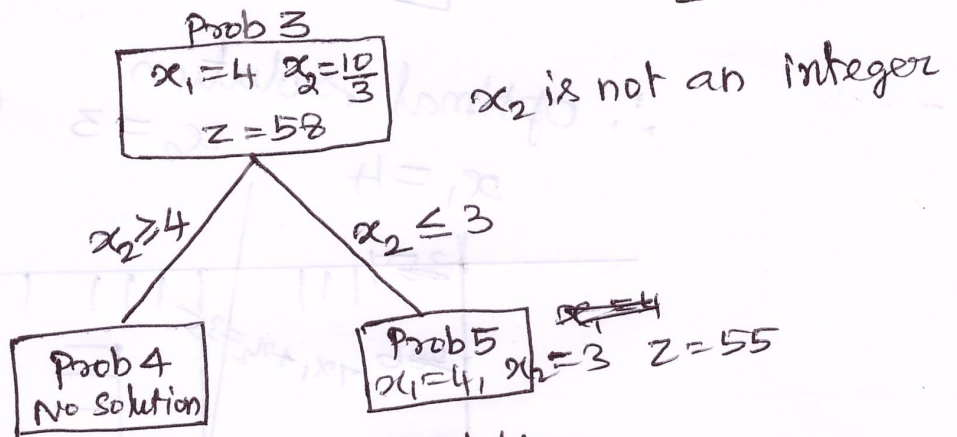 Prob 3
x₁ = 4 x₂ = 10/3
z = 58
x₂ is not an integer
x₂ ≥ 4
x₂ ≤ 3
Prob 4
No Solution
Prob 5
x₁ = 4, x₂ = 3 z = 55